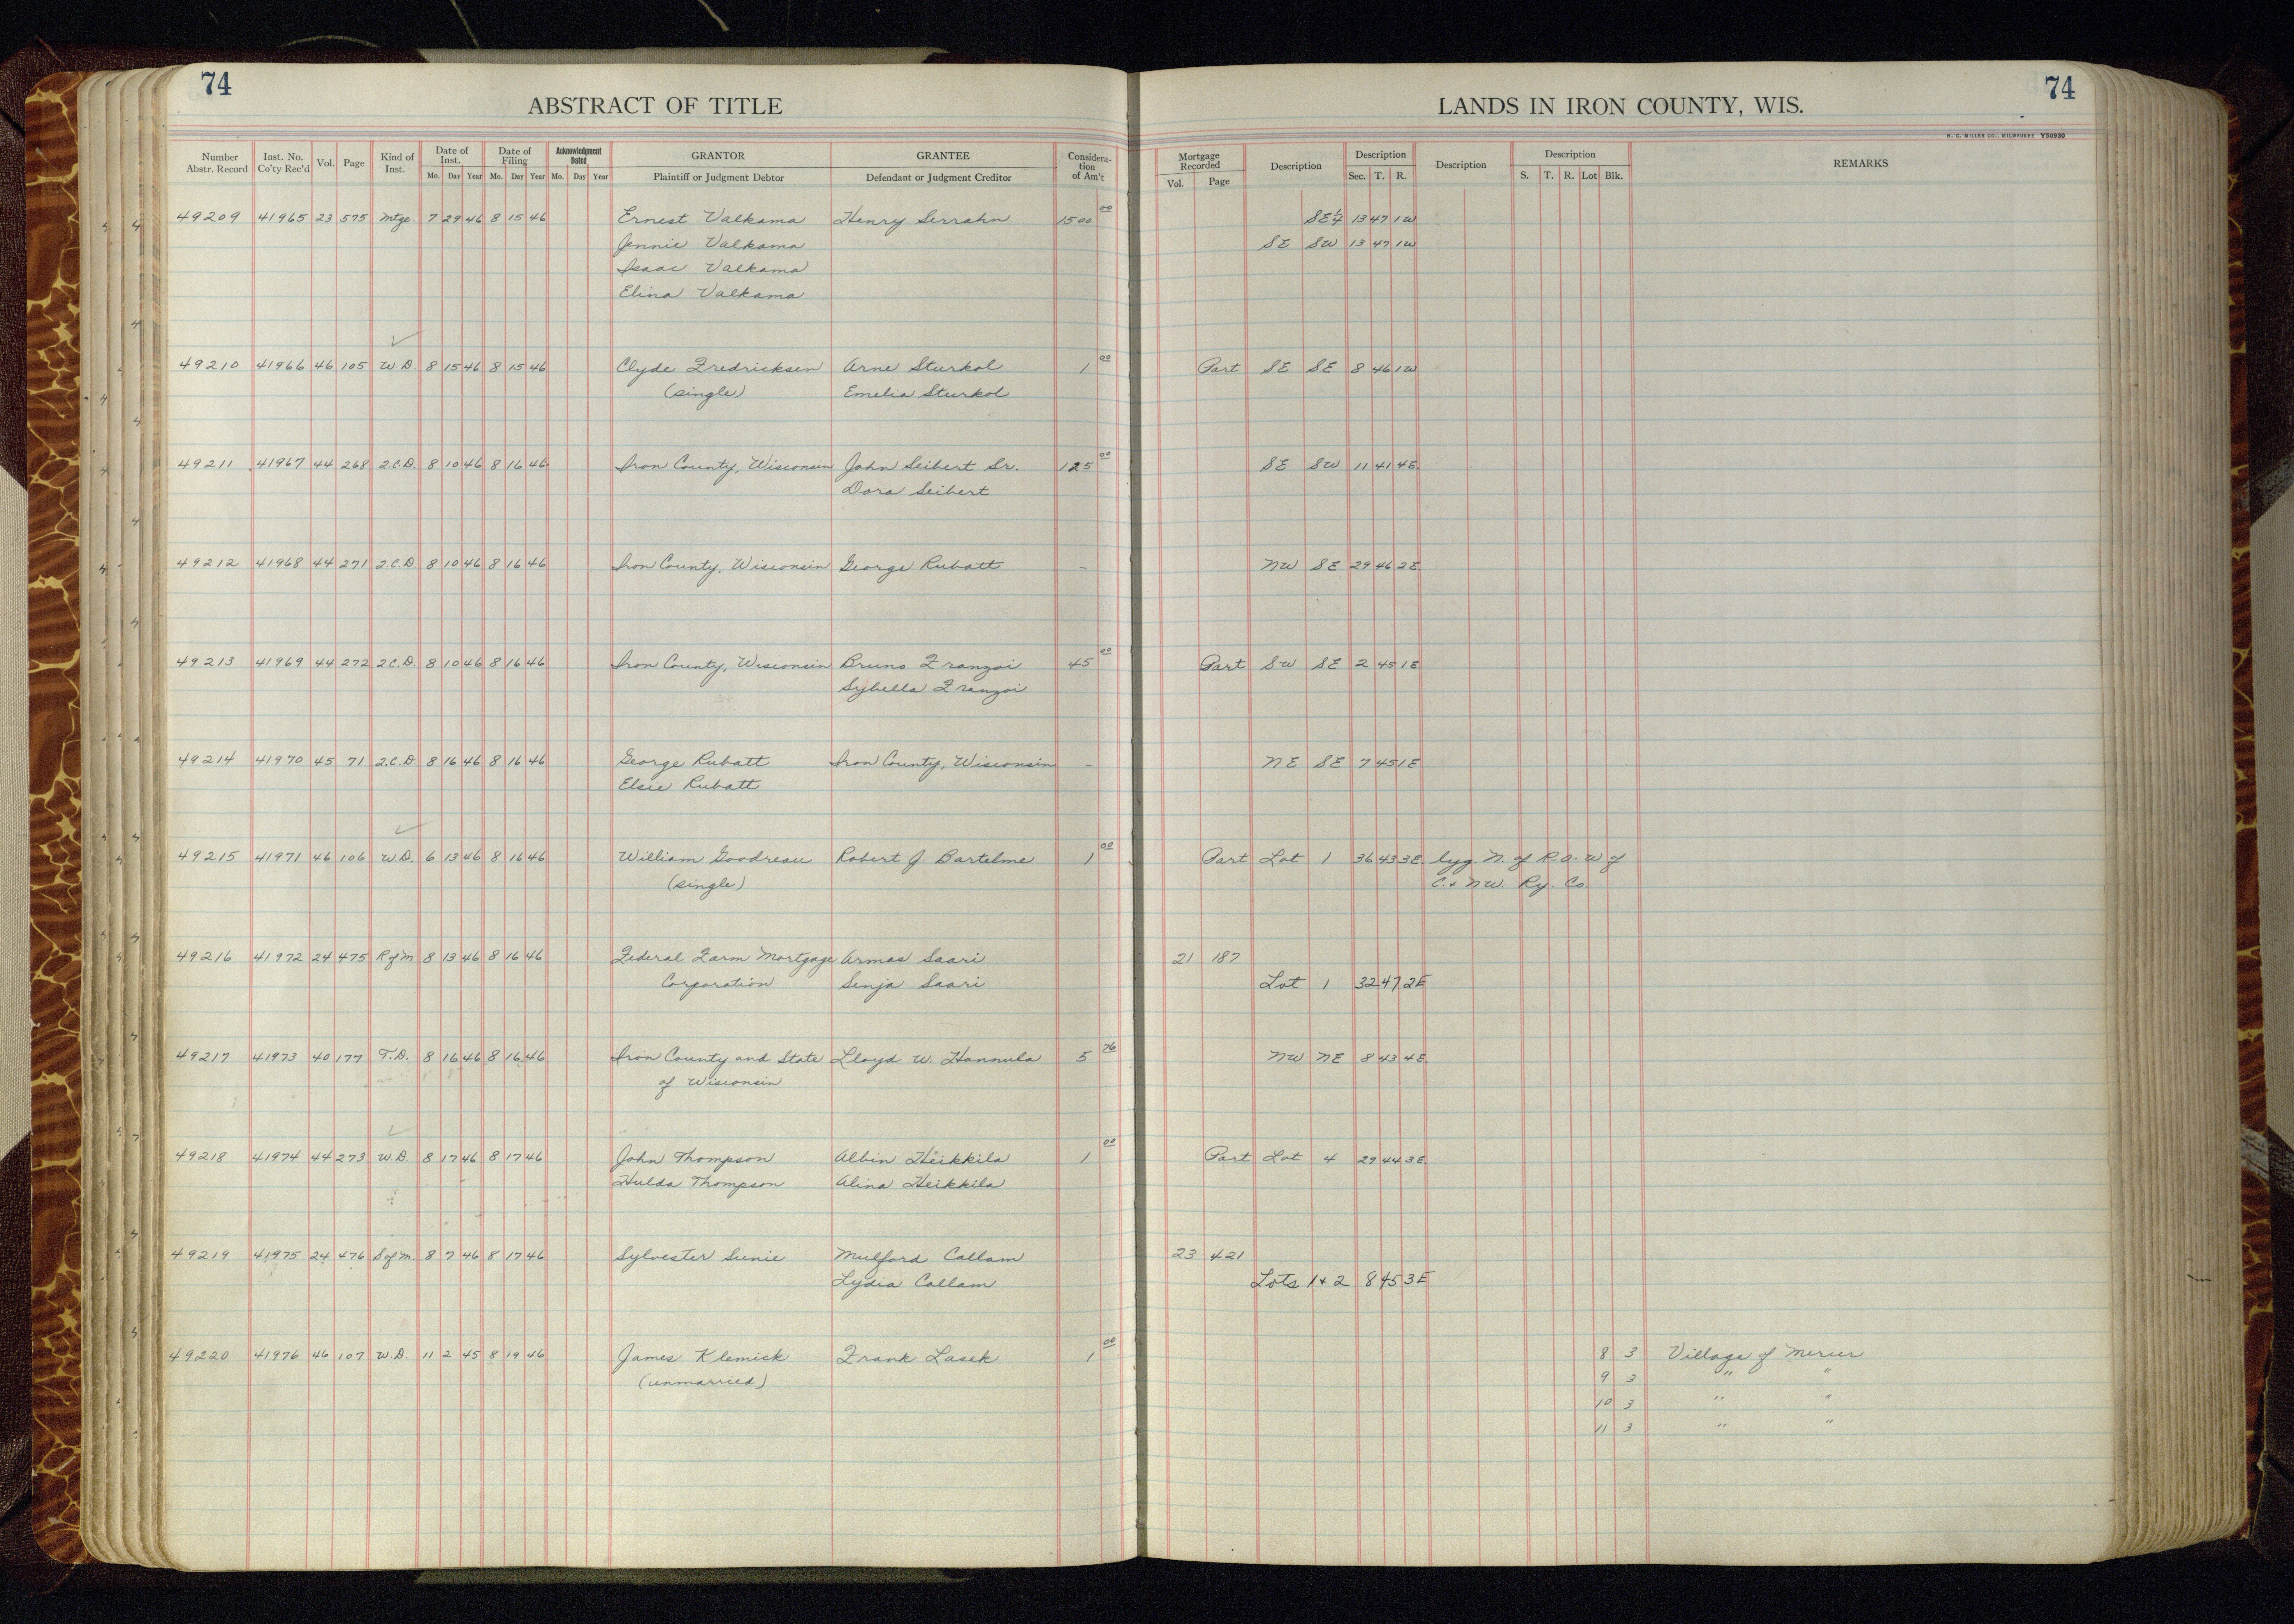 74
74
ABSTRACT OF TITLE
LANDS IN IRON COUNTY, WIS.
H. C. MILLER CO., MILWAUKEE Y50930
Number Abstr. Record Inst. No. Co'ty Rec'd Vol. Page Kind of Inst. Date of Inst. Mo. Day Year Date of Filing Mo. Day Year Acknowledgment Dated Mo. Day Year GRANTOR Plaintiff or Judgment Debtor GRANTEE Defendant or Judgment Creditor Consideration of Am't Mortgage Recorded Vol. Page Description Description Sec. T. R. Description Description S. T. R. Lot Blk. REMARKS
49209 41965 23 575 Mtge. 7 29 46 8 15 46 Ernest Valkama Henry Serrahn 1500 00 SE¼ 13 47 1W
Jennie Valkama SE SW 13 47 1W
Isaac Valkama
Elina Valkama
49210 41966 46 105 W.D. 8 15 46 8 15 46 Clyde Fredricksen Arne Sturkol 1 00 Part SE SE 8 46 1W
(single) Emelia Sturkol
49211 41967 44 268 Q.C.D. 8 10 46 8 16 46 Iron County, Wisconsin John Seibert Sr. 125 00 SE SW 11 41 4E.
Dora Seibert
49212 41968 44 271 Q.C.D. 8 10 46 8 16 46 Iron County, Wisconsin George Rubatt - NW SE 29 46 2E
49213 41969 44 272 Q.C.D. 8 10 46 8 16 46 Iron County, Wisconsin Bruno Franzoi 45 00 Part SW SE 2 45 1E
Sybella Franzoi
49214 41970 45 71 Q.C.D. 8 16 46 8 16 46 George Rubatt Iron County, Wisconsin - NE SE 7 45 1E
Elsie Rubatt
49215 41971 46 106 W.D. 6 13 46 8 16 46 William Goodreau Robert J. Bartelme 1 00 Part Lot 1 36 43 3E lyg. N. of R-O-W of
(single) C. & N.W. Ry. Co.
49216 41972 24 475 R of M 8 13 46 8 16 46 Federal Farm Mortgage Armas Saari 21 187
Corporation Senja Saari Lot 1 32 47 2E
49217 41973 40 177 T.D. 8 16 46 8 16 46 Iron County and State Lloyd W. Hannula 5 76 NW NE 8 43 4E
of Wisconsin
49218 41974 44 273 W.D. 8 17 46 8 17 46 John Thompson Albin Heikkila 1 00 Part Lot 4 29 44 3E
Hulda Thompson Alina Heikkila
49219 41975 24 476 S of M. 8 7 46 8 17 46 Sylvester Sunie Mulford Callam 23 421
Lydia Callam Lots 1 & 2 8 45 3E
49220 41976 46 107 W.D. 11 2 45 8 19 46 James Klemick Frank Lasek 1 00 8 3 Village of Mercer
(unmarried) 9 3 " "
10 3 " "
11 3 " "